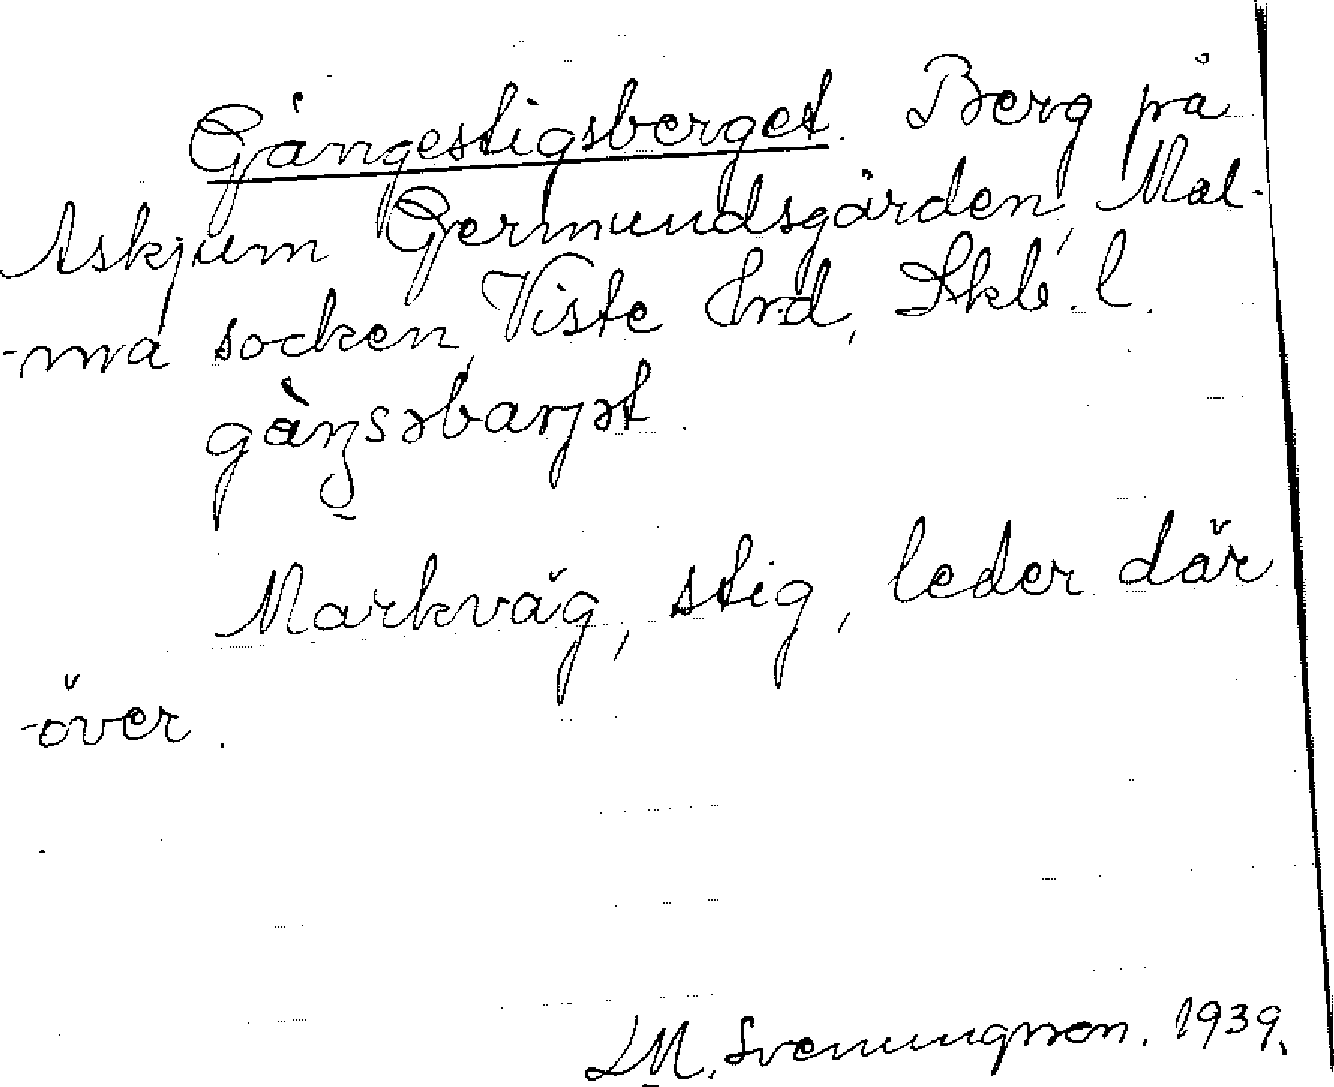 Gångestigsberget. Berg på
Askjum Germundsgården, Mal-
-ma socken, Viste Hrd, Skb. l.
Markväg, stig, leder där
-över.
LM. Svenungsson. 1939.